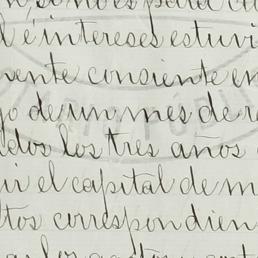 si no es para cu
l é intereses estuvi
mente consiente en
go de un mes de re
ados los tres años
ir el capital de m
ltos correspondien